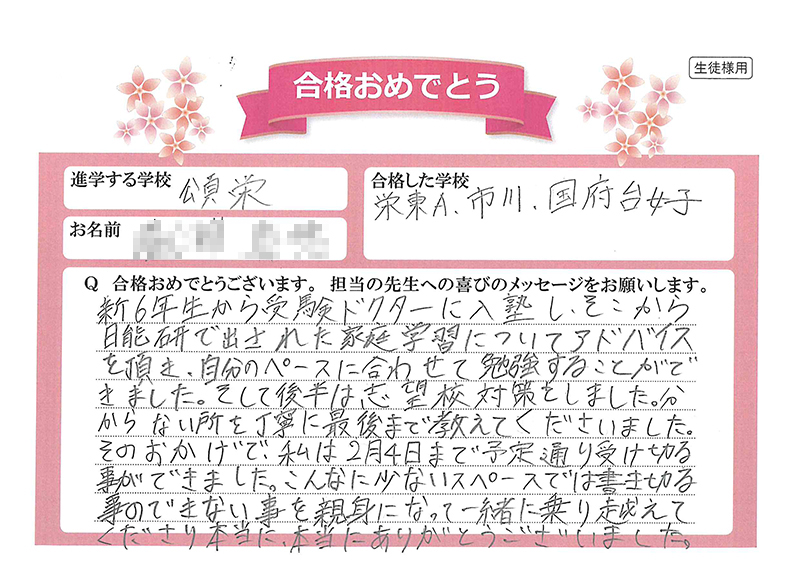 合格おめでとう
生徒様用
進学する学校
頌栄
合格した学校
栄東A、市川、国府台女子
お名前
Q 合格おめでとうございます。担当の先生への喜びのメッセージをお願いします。
新6年生から受験ドクターに入塾し、そこから
日能研で出された家庭学習についてアドバイス
を頂き、自分のペースに合わせて勉強することがで
きました。そして後半は志望校対策をしました。分
からない所を丁寧に最後まで教えてくださいました。
そのおかげで私は2月4日まで予定通り受け切る
事ができました。こんなに少ないスペースでは書き切る
事のできない事を親身になって一緒に乗り越えて
くださり本当に、本当にありがとうございました。